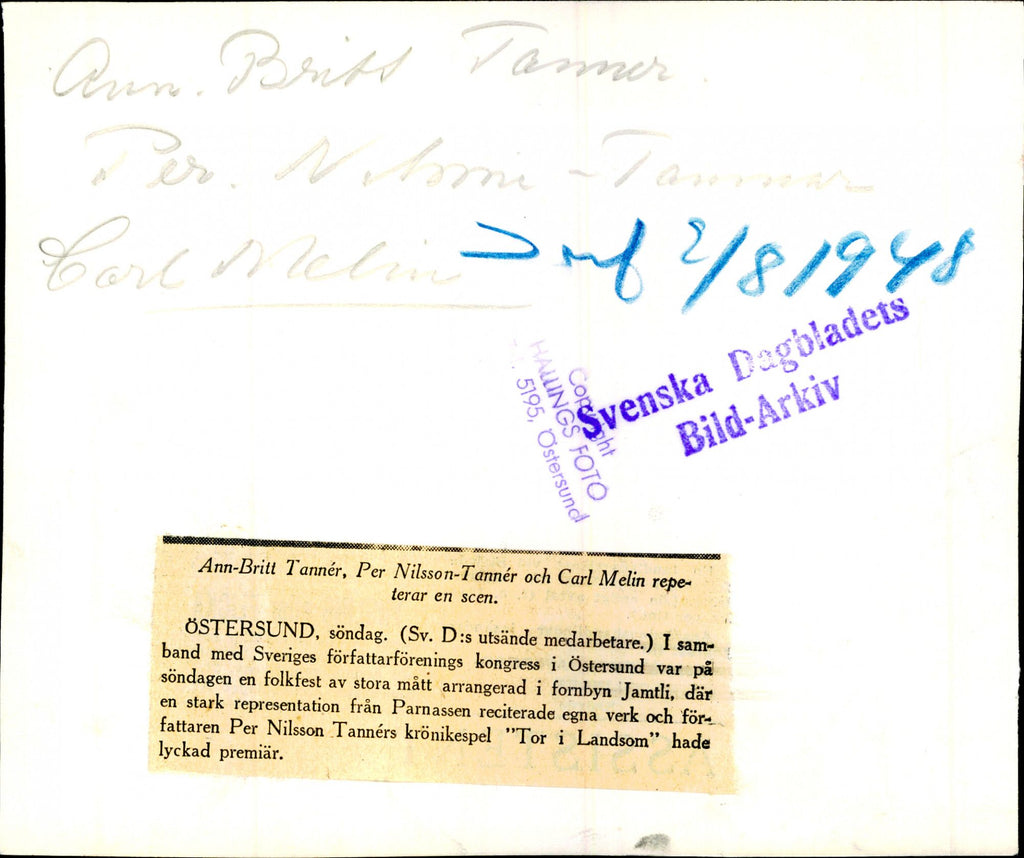 Ann. Britt Tanner.
Per. Nilsson - Tanner
Carl Melin
2/8 1948
Svenska Dagbladets
Bild-Arkiv
Copyright
HALLINGS FOTO
5195, Östersund
Ann-Britt Tannér, Per Nilsson-Tannér och Carl Melin repe-
terar en scen.
ÖSTERSUND, söndag. (Sv. D:s utsände medarbetare.) I sam-
band med Sveriges författarförenings kongress i Östersund var på
söndagen en folkfest av stora mått arrangerad i fornbyn Jamtli, där
en stark representation från Parnassen reciterade egna verk och för-
fattaren Per Nilsson Tannérs krönikespel "Tor i Landsom" hade
lyckad premiär.